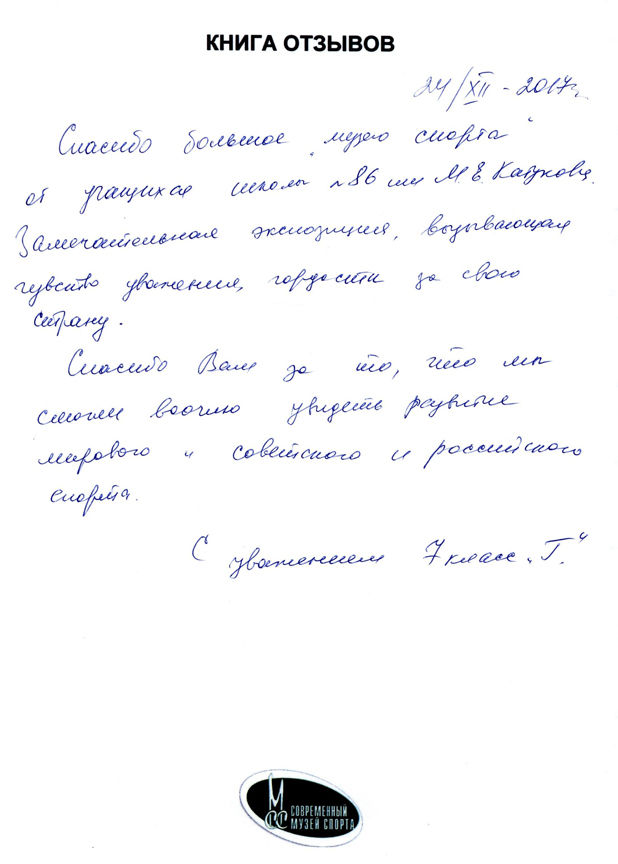 КНИГА ОТЗЫВОВ
24/XII - 2017г.
Спасибо большое „музею спорта"
от учащихся школы №86 им М.Е. Катукова.
Замечательная экспозиция, вызывающая
чувство уважения, гордости за свою
страну.
Спасибо Вам за то, что мы
смогли воочию увидеть развитие
мирового и советского и российского
спорта.
С уважением 7 класс „Г."
МСС СОВРЕМЕННЫЙ
МУЗЕЙ СПОРТА